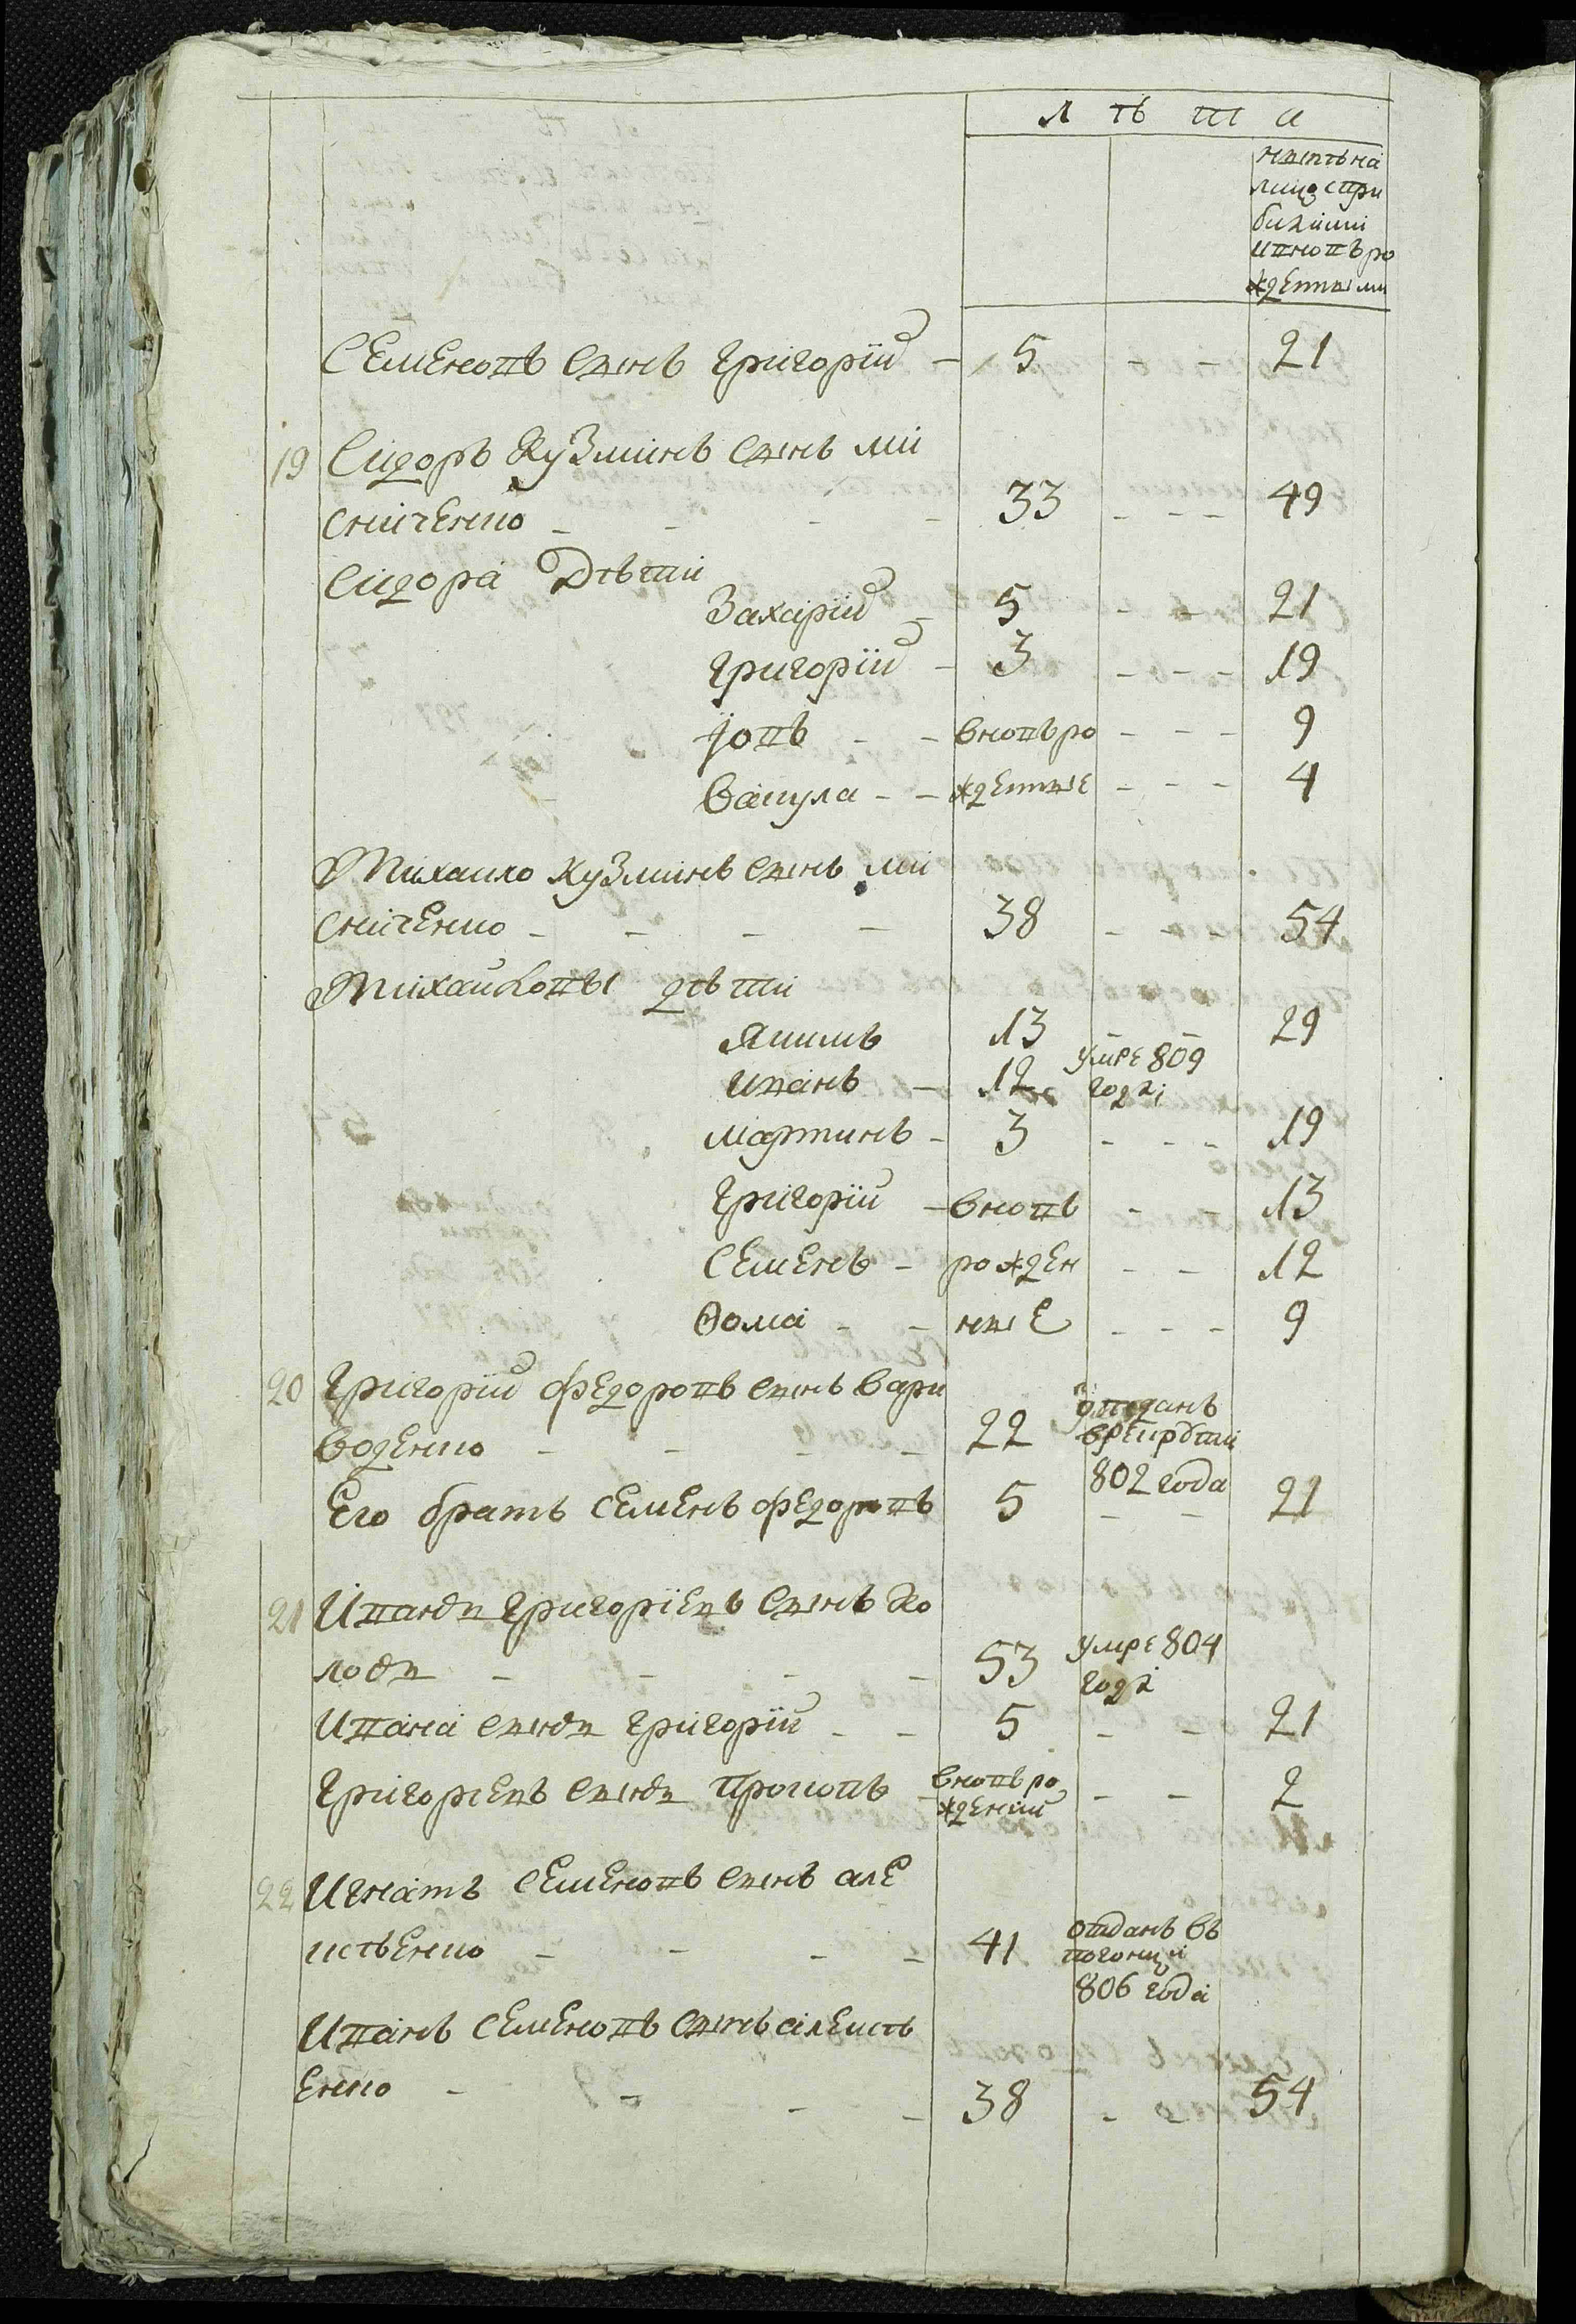 Лѣта
нынѣ на
лицо с при
былими
и вновь ро
жденными
Семеновъ сынъ Григорій - 5 - - 21
19 Сидоръ Кузминъ сынъ Мі
сниченко - - - - 33 - - - 49
Сидора Дѣти
Захарій - 5 - - 21
Григорій - 3 - - - 19
Іовъ - - вновь ро - - - 9
Вакула - - жденные - - - 4
Михаило Кузминъ сынъ Мі
сниченко - - - - 38 - - - 54
Михайловы дѣти
Якимъ 13 - - 29
Иванъ - 12 умре 809
года
Мартинъ - 3 - - - 19
Григорій - вновь - - 13
Семенъ - рожден - - 12
Ѳома - - ные - - - 9
20 Григорій Федоровъ сынъ Вари
воденко - - - - 22 отданъ
в рекрути
802 года
Его братъ Семенъ Федоровъ 5 - - 21
21 Иванъ Григоріевъ сынъ Ко
лодъ - - - - 53 умре 804
года
Ивана сынъ Григорій - - 5 - - 21
Григоріевъ сынъ Прокопъ - вновь ро
жденній - - 2
22 Игнатъ Семеновъ сынъ Але
ксѣенко - - - - 41 отданъ въ
погонци
806 года
Иванъ Семеновъ сынъ Алексѣ
енко - - - - 38 - - 54